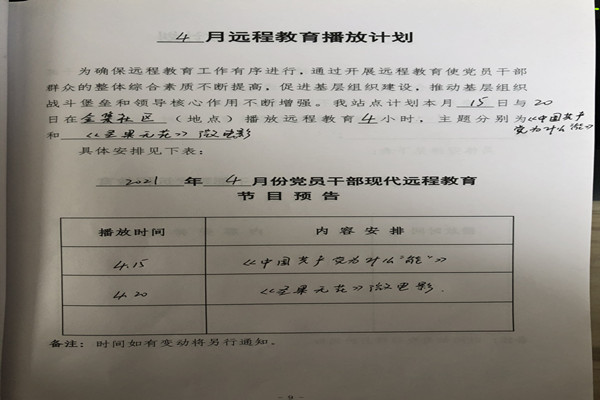 4 月远程教育播放计划
为确保远程教育工作有序进行，通过开展远程教育使党员干部
群众的整体综合素质不断提高，促进基层组织建设，推动基层组织
战斗堡垒和领导核心作用不断增强。我站点计划本月 15 日与 20
日在金集社区（地点）播放远程教育 4 小时，主题分别为《中国共产
党为什么"能"》
和《圣果无花》微电影
具体安排见下表：
2021 年 4 月份党员干部现代远程教育
节 目 预 告
播放时间 内 容 安 排
4.15 《中国共产党为什么"能"》
4.20 《圣果无花》微电影.
备注：时间如有变动将另行通知。
- 9 -